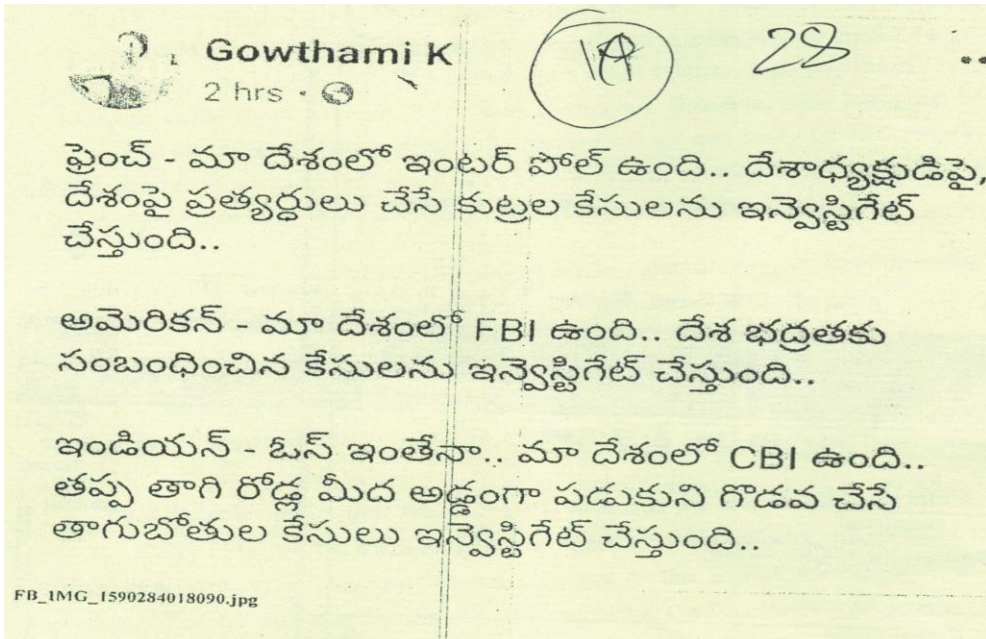 Gowthami K
2 hrs ·
28
ఫ్రెంచ్ - మా దేశంలో ఇంటర్ పోల్ ఉంది.. దేశాధ్యక్షుడిపై,
దేశంపై ప్రత్యర్ధులు చేసే కుట్రల కేసులను ఇన్వెస్టిగేట్
చేస్తుంది..
అమెరికన్ - మా దేశంలో FBI ఉంది.. దేశ భద్రతకు
సంబంధించిన కేసులను ఇన్వెస్టిగేట్ చేస్తుంది..
ఇండియన్ - ఓస్ ఇంతేనా.. మా దేశంలో CBI ఉంది..
తప్ప తాగి రోడ్ల మీద అడ్డంగా పడుకుని గొడవ చేసే
తాగుబోతుల కేసులు ఇన్వెస్టిగేట్ చేస్తుంది..
FB_IMG_1590284018090.jpg